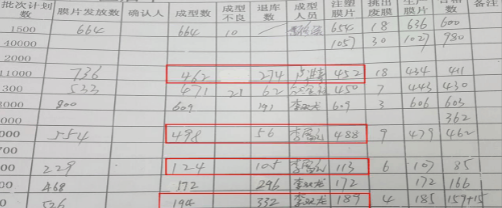 批次计划数 膜片发放数 确认人 成型数 成型不良 退库数 成型人员 注塑膜片 挑出废膜 生产膜片 合格数 备注
1500 664 664 10 654 18 636 600
40000 1057 30 1027 980
2000
11000 736 462 274 452 18 434 411
300 533 471 21 62 450 7 443 430
000 800 609 191 李双龙 609 3 606 603
362
000 554 498 56 488 9 479 462
700
00 229 124 105 113 6 107 85
00 468 172 296 李双龙 172 172 166
0 526 194 332 李双龙 189 4 185 157+15